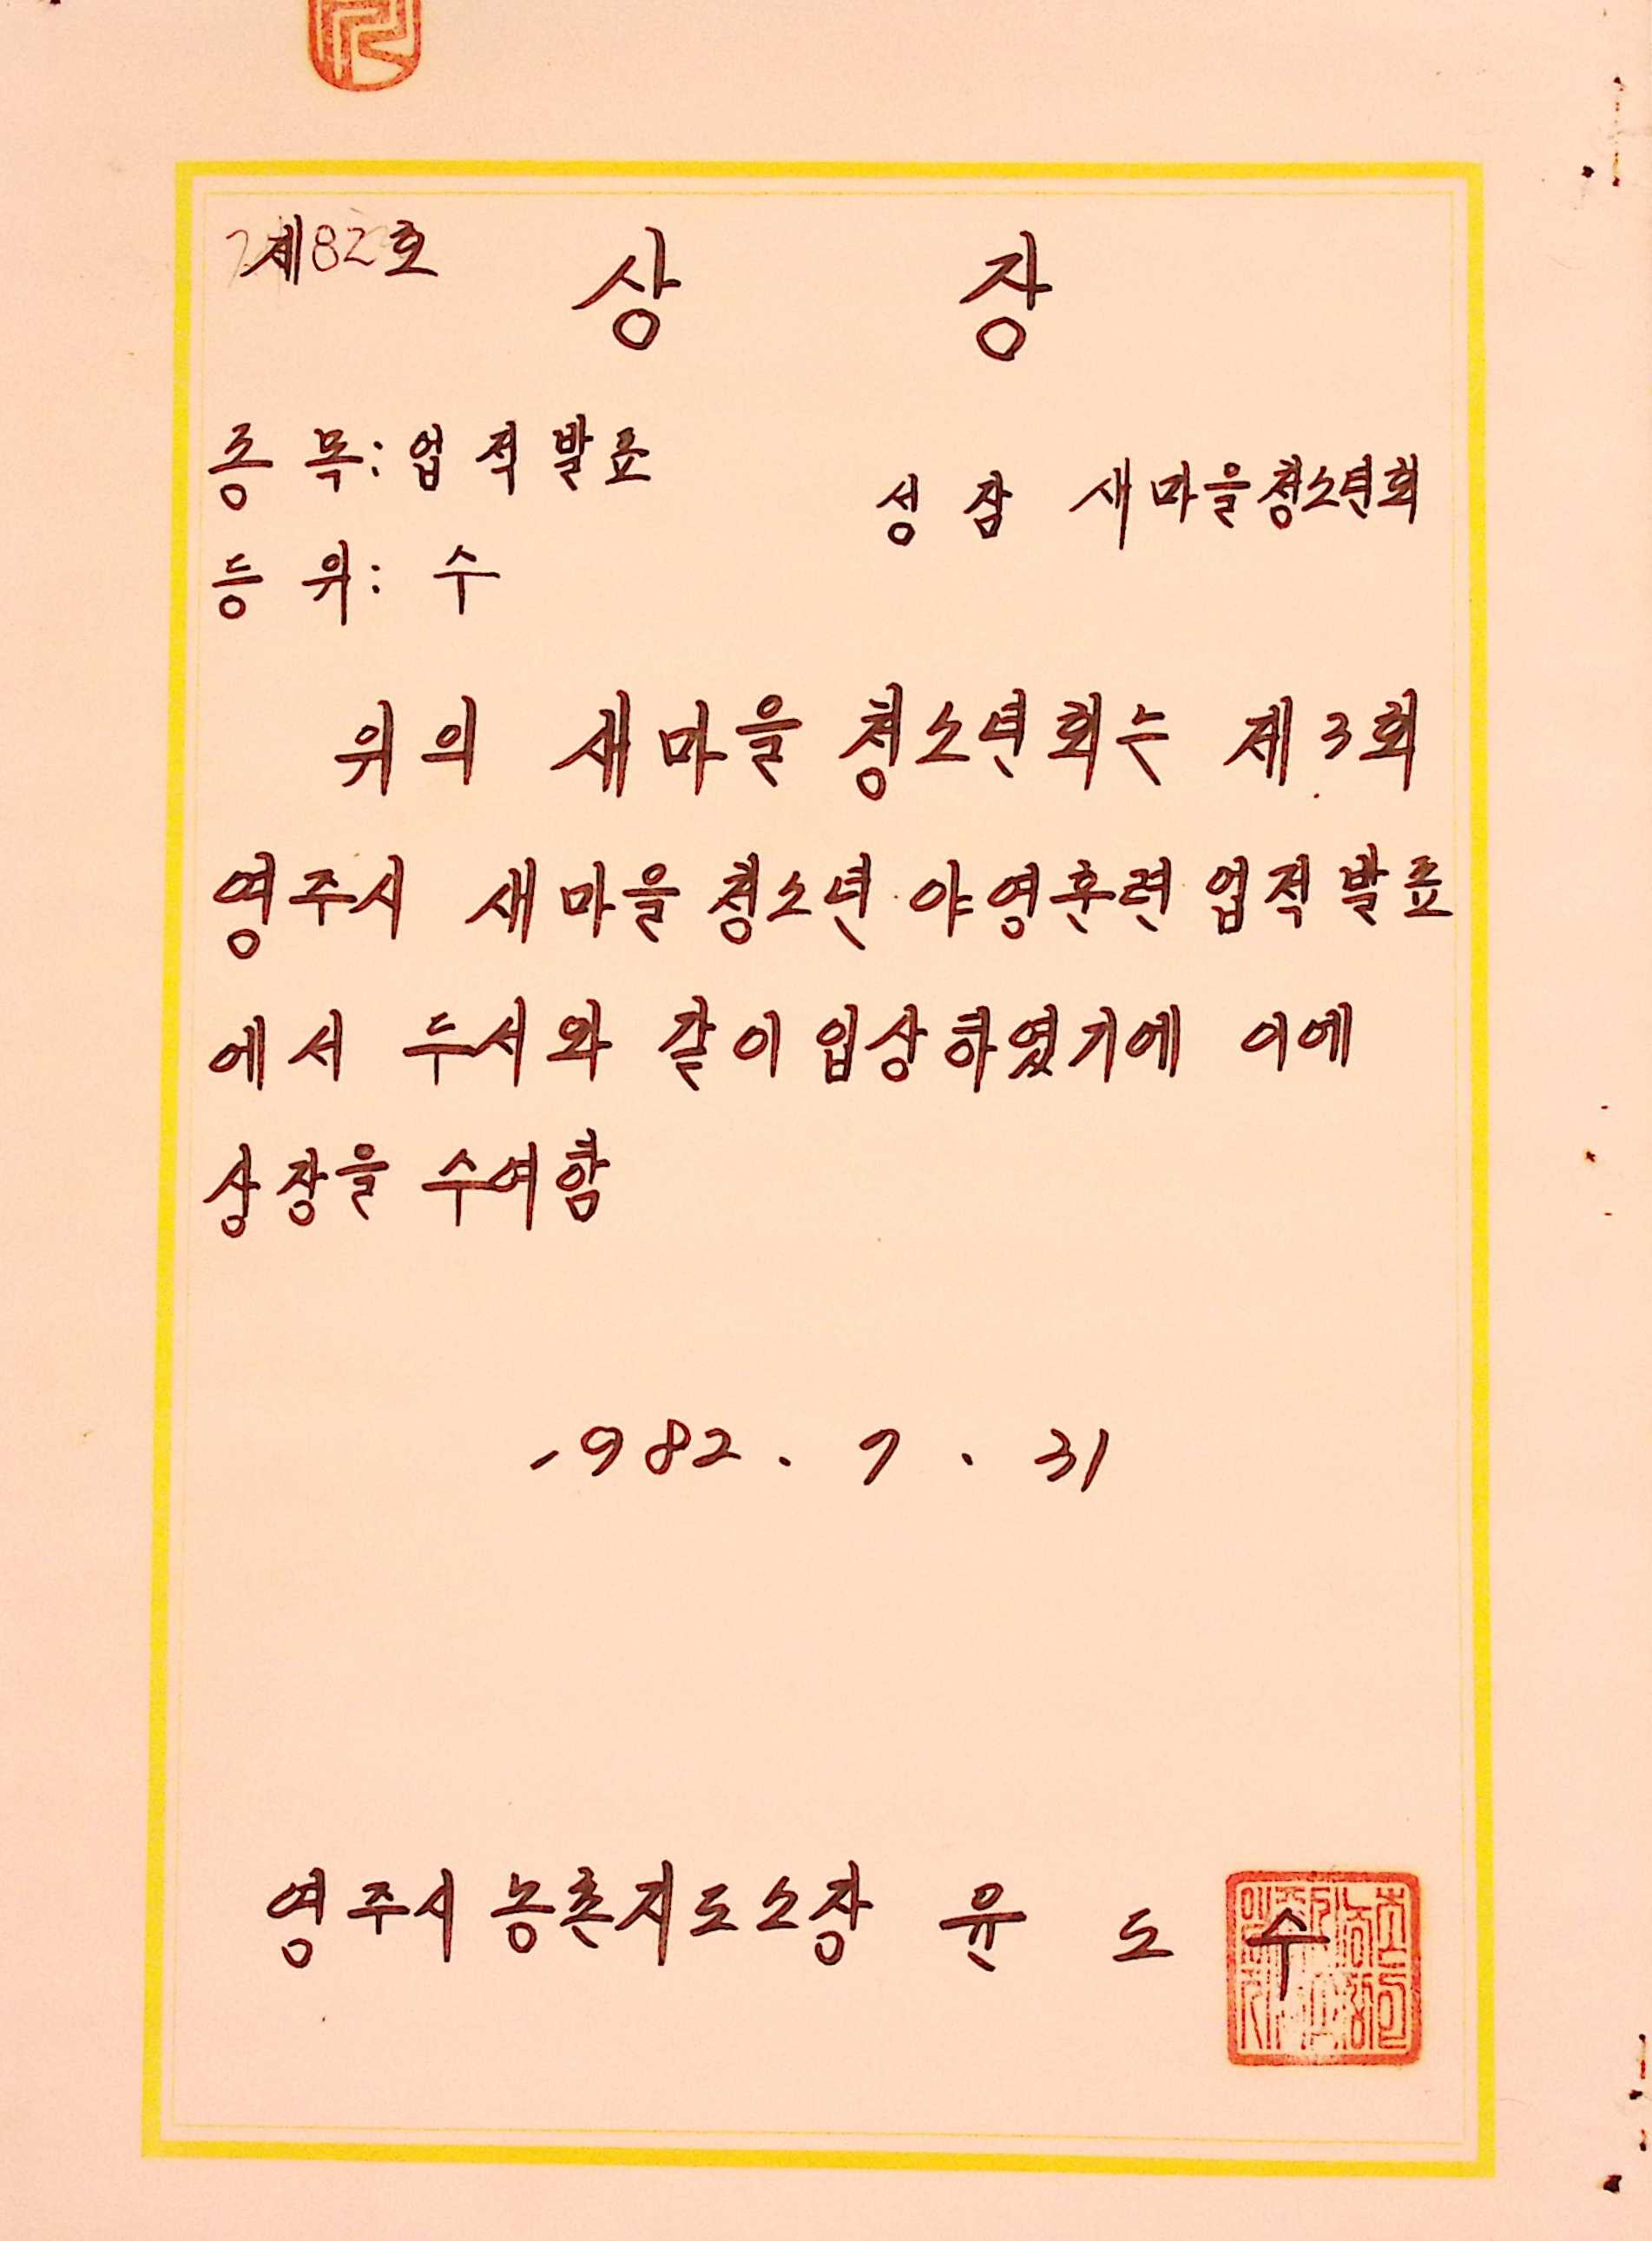 제82호
상 장
종 목: 업적발표
성 잠 새마을청소년회
등 위: 수
위의 새마을 청소년회는 제3회
영주시 새마을 청소년 야영훈련 업적발표
에서 두서와 같이 입상하였기에 이에
상장을 수여함
1982. 7. 31
영주시 농촌지도소장 윤 도 수